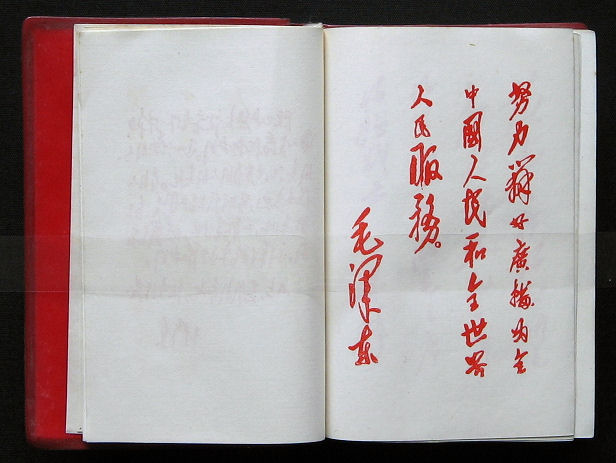 努力辦好廣播为全
中國人民和全世界
人民服務。
毛澤東